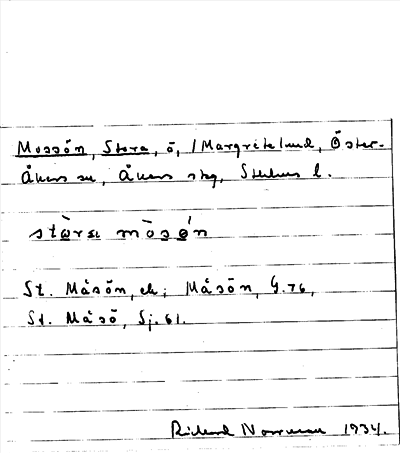 Mossön, Stora, ö, / Margretelund, Öster-
åkers sn, Åkers skg, Sthlms l.
stò̱rsɩ mòsǝ́n
St. Måsön, ek; Måsön, G.76,
St. Måsö, Sj.61.
Rickard Norrman 1934.